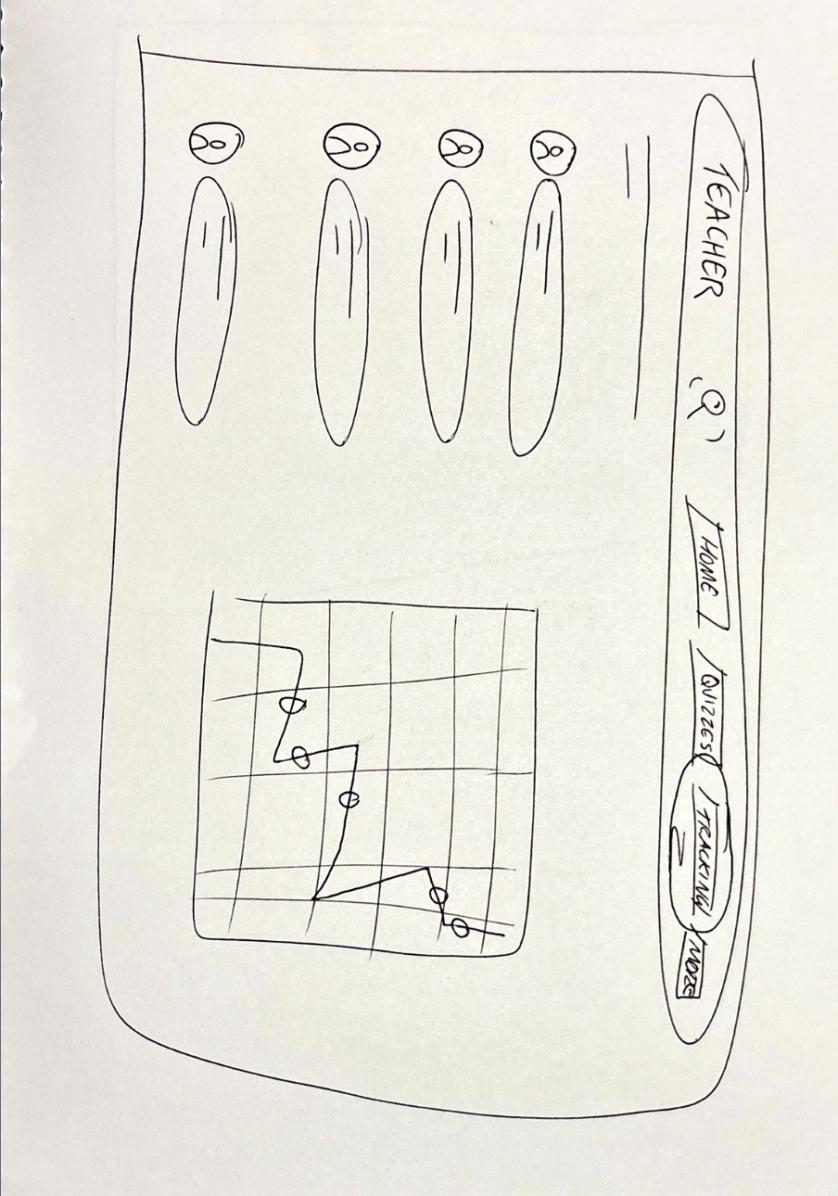 TEACHER HOME QUIZZES TRACKING MORE